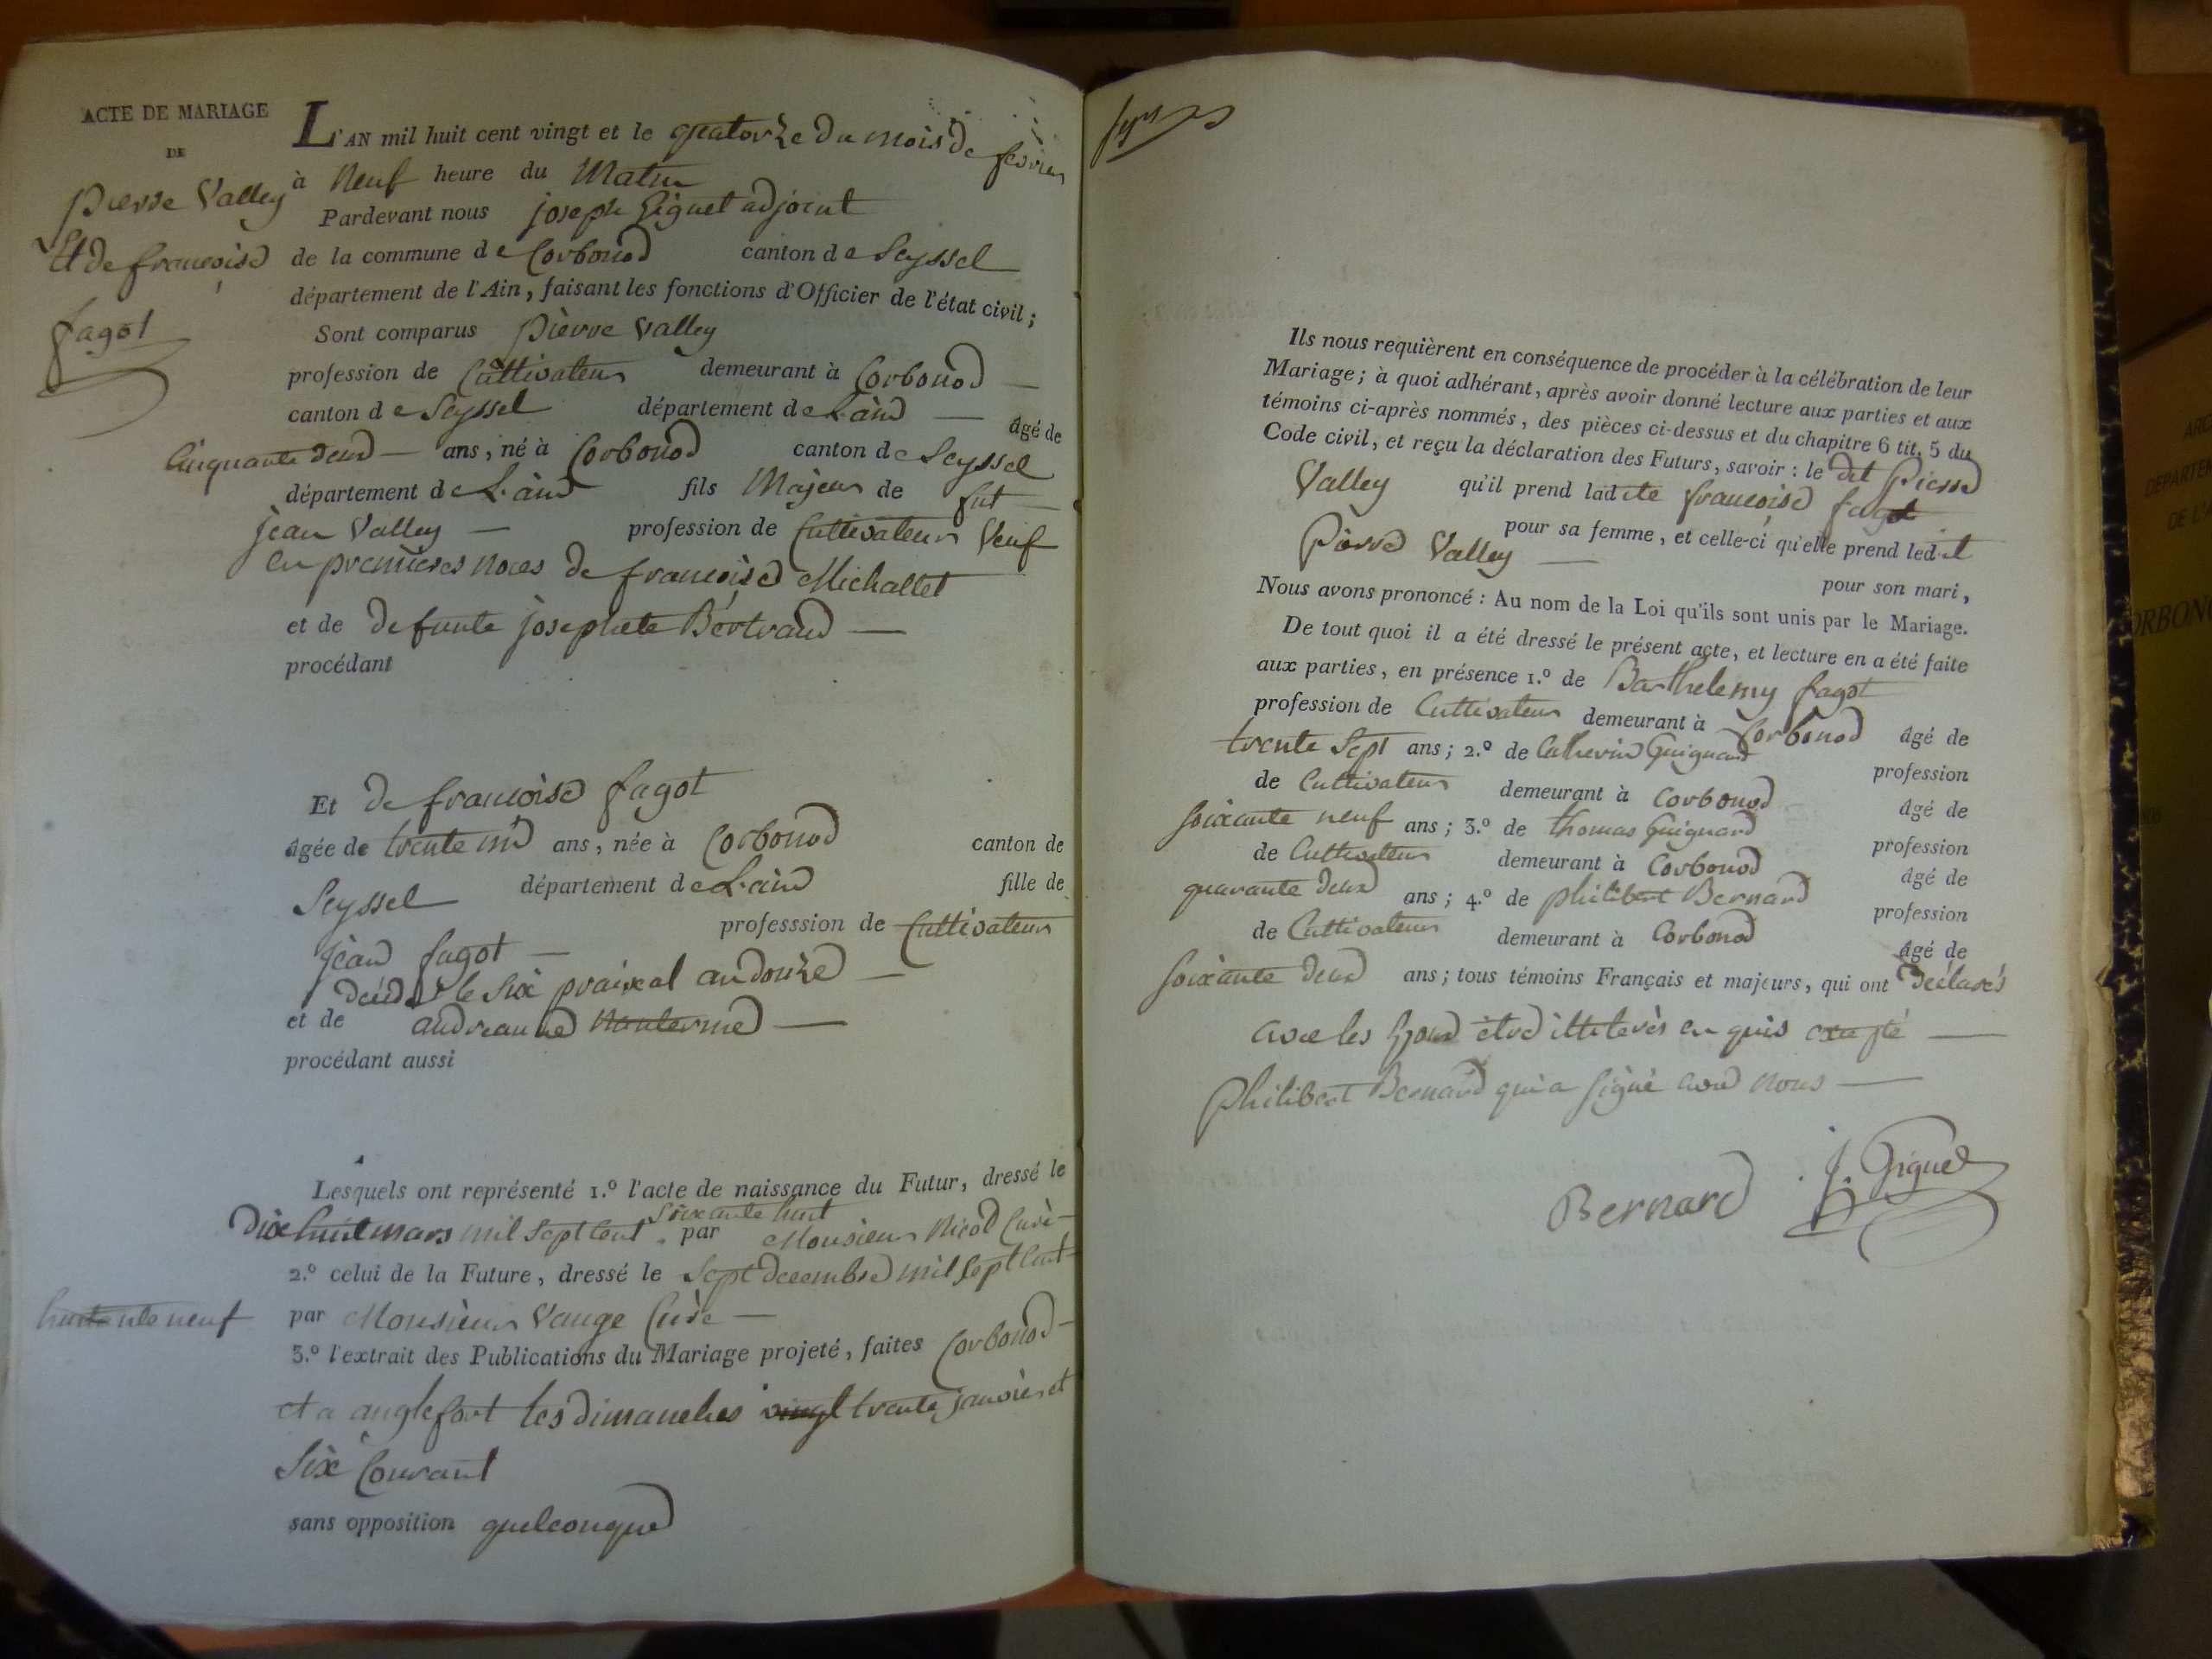 ACTE DE MARIAGE
DE
pierre Valley
Et de francoise
fagot
L'AN mil huit cent vingt et le quatorze du mois de fevrier
à Neuf heure du Matin
Pardevant nous joseph Giguet adjoint
de la commune de Corbonod canton de Seyssel
département de l'Ain, faisant les fonctions d'Officier de l'état civil;
Sont comparus pierre Valley
profession de Cultivateur demeurant à Corbonod
canton de Seyssel département de L'ain âgé de
Cinquante deux ans, né à Corbonod canton de Seyssel
département de L'ain fils Majeur de fut
jean Valley profession de Cultivateur Veuf
en premieres noces de francoise Michallet
et de defunte josephete Bertrand
procédant
Et de francoise fagot
âgée de trente un ans, née à Corbonod canton de
Seyssel département de L'ain fille de
jean fagot professsion de Cultivateur
décédé le six prairial an douze
et de andreanne
procédant aussi
Lesquels ont représenté 1.º l'acte de naissance du Futur, dressé le
soixante huit
Dix huit mars mil sept cent par Monsieur Nicod Curé
2.º celui de la Future, dressé le sept decembre mil sept cent
huitante neuf par Monsieur Vauge Curé
3.º l'extrait des Publications du Mariage projeté, faites Corbonod
et a anglefort les dimanches vingt trente janvier et
six Courant
sans opposition quelconque
Ils nous requièrent en conséquence de procéder à la célébration de leur
Mariage; à quoi adhérant, après avoir donné lecture aux parties et aux
témoins ci-après nommés, des pièces ci-dessus et du chapitre 6 tit. 5 du
Code civil, et reçu la déclaration des Futurs, savoir: le dit Pierre
Valley qu'il prend ladite francoise fagot
pour sa femme, et celle-ci qu'elle prend ledit
Pierre Valley pour son mari,
Nous avons prononcé: Au nom de la Loi qu'ils sont unis par le Mariage.
De tout quoi il a été dressé le présent acte, et lecture en a été faite
aux parties, en présence 1.º de Barthelemy fagot
profession de Cultivateur demeurant à Corbonod âgé de
trente sept ans; 2.º de Catherin Guignard profession
de Cultivateur demeurant à Corbonod âgé de
soixante neuf ans; 3.º de thomas Guignard profession
de Cultivateur demeurant à Corbonod âgé de
quarante deux ans; 4.º de philibert Bernard profession
de Cultivateur demeurant à Corbonod âgé de
soixante deux ans; tous témoins Français et majeurs, qui ont déclarés
avec les Epoux être illiterés en quis
Philibert Bernard qui a signé avec nous
Bernard J. Giguet